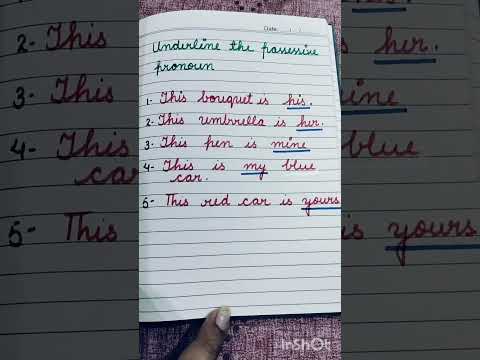 Date:
Underline the possessive
pronoun
1- This bouquet is his.
2- This umbrella is her.
3- This pen is mine
4- This is my blue
car.
5- This red car is yours
InShOt